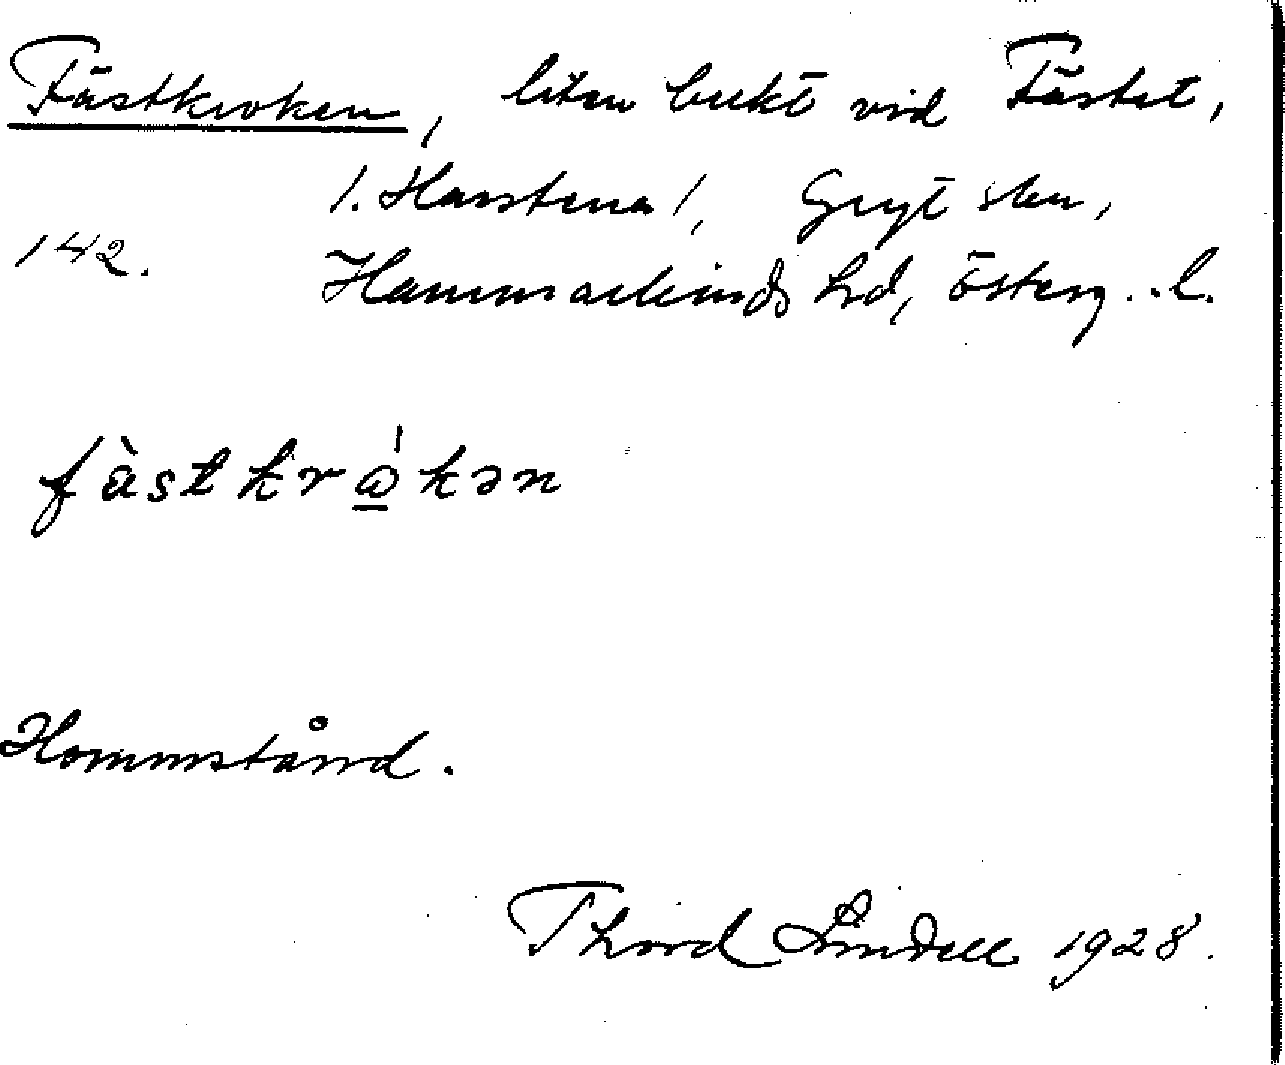 Fästkroken, liten bukt vid Fästet,
/. Harstena /, Gryt skn,
142. Hammarkinds hd, Österg. l.
fàstkrω̲̍kən
Hommstånd.
Thord Lindell 1928.